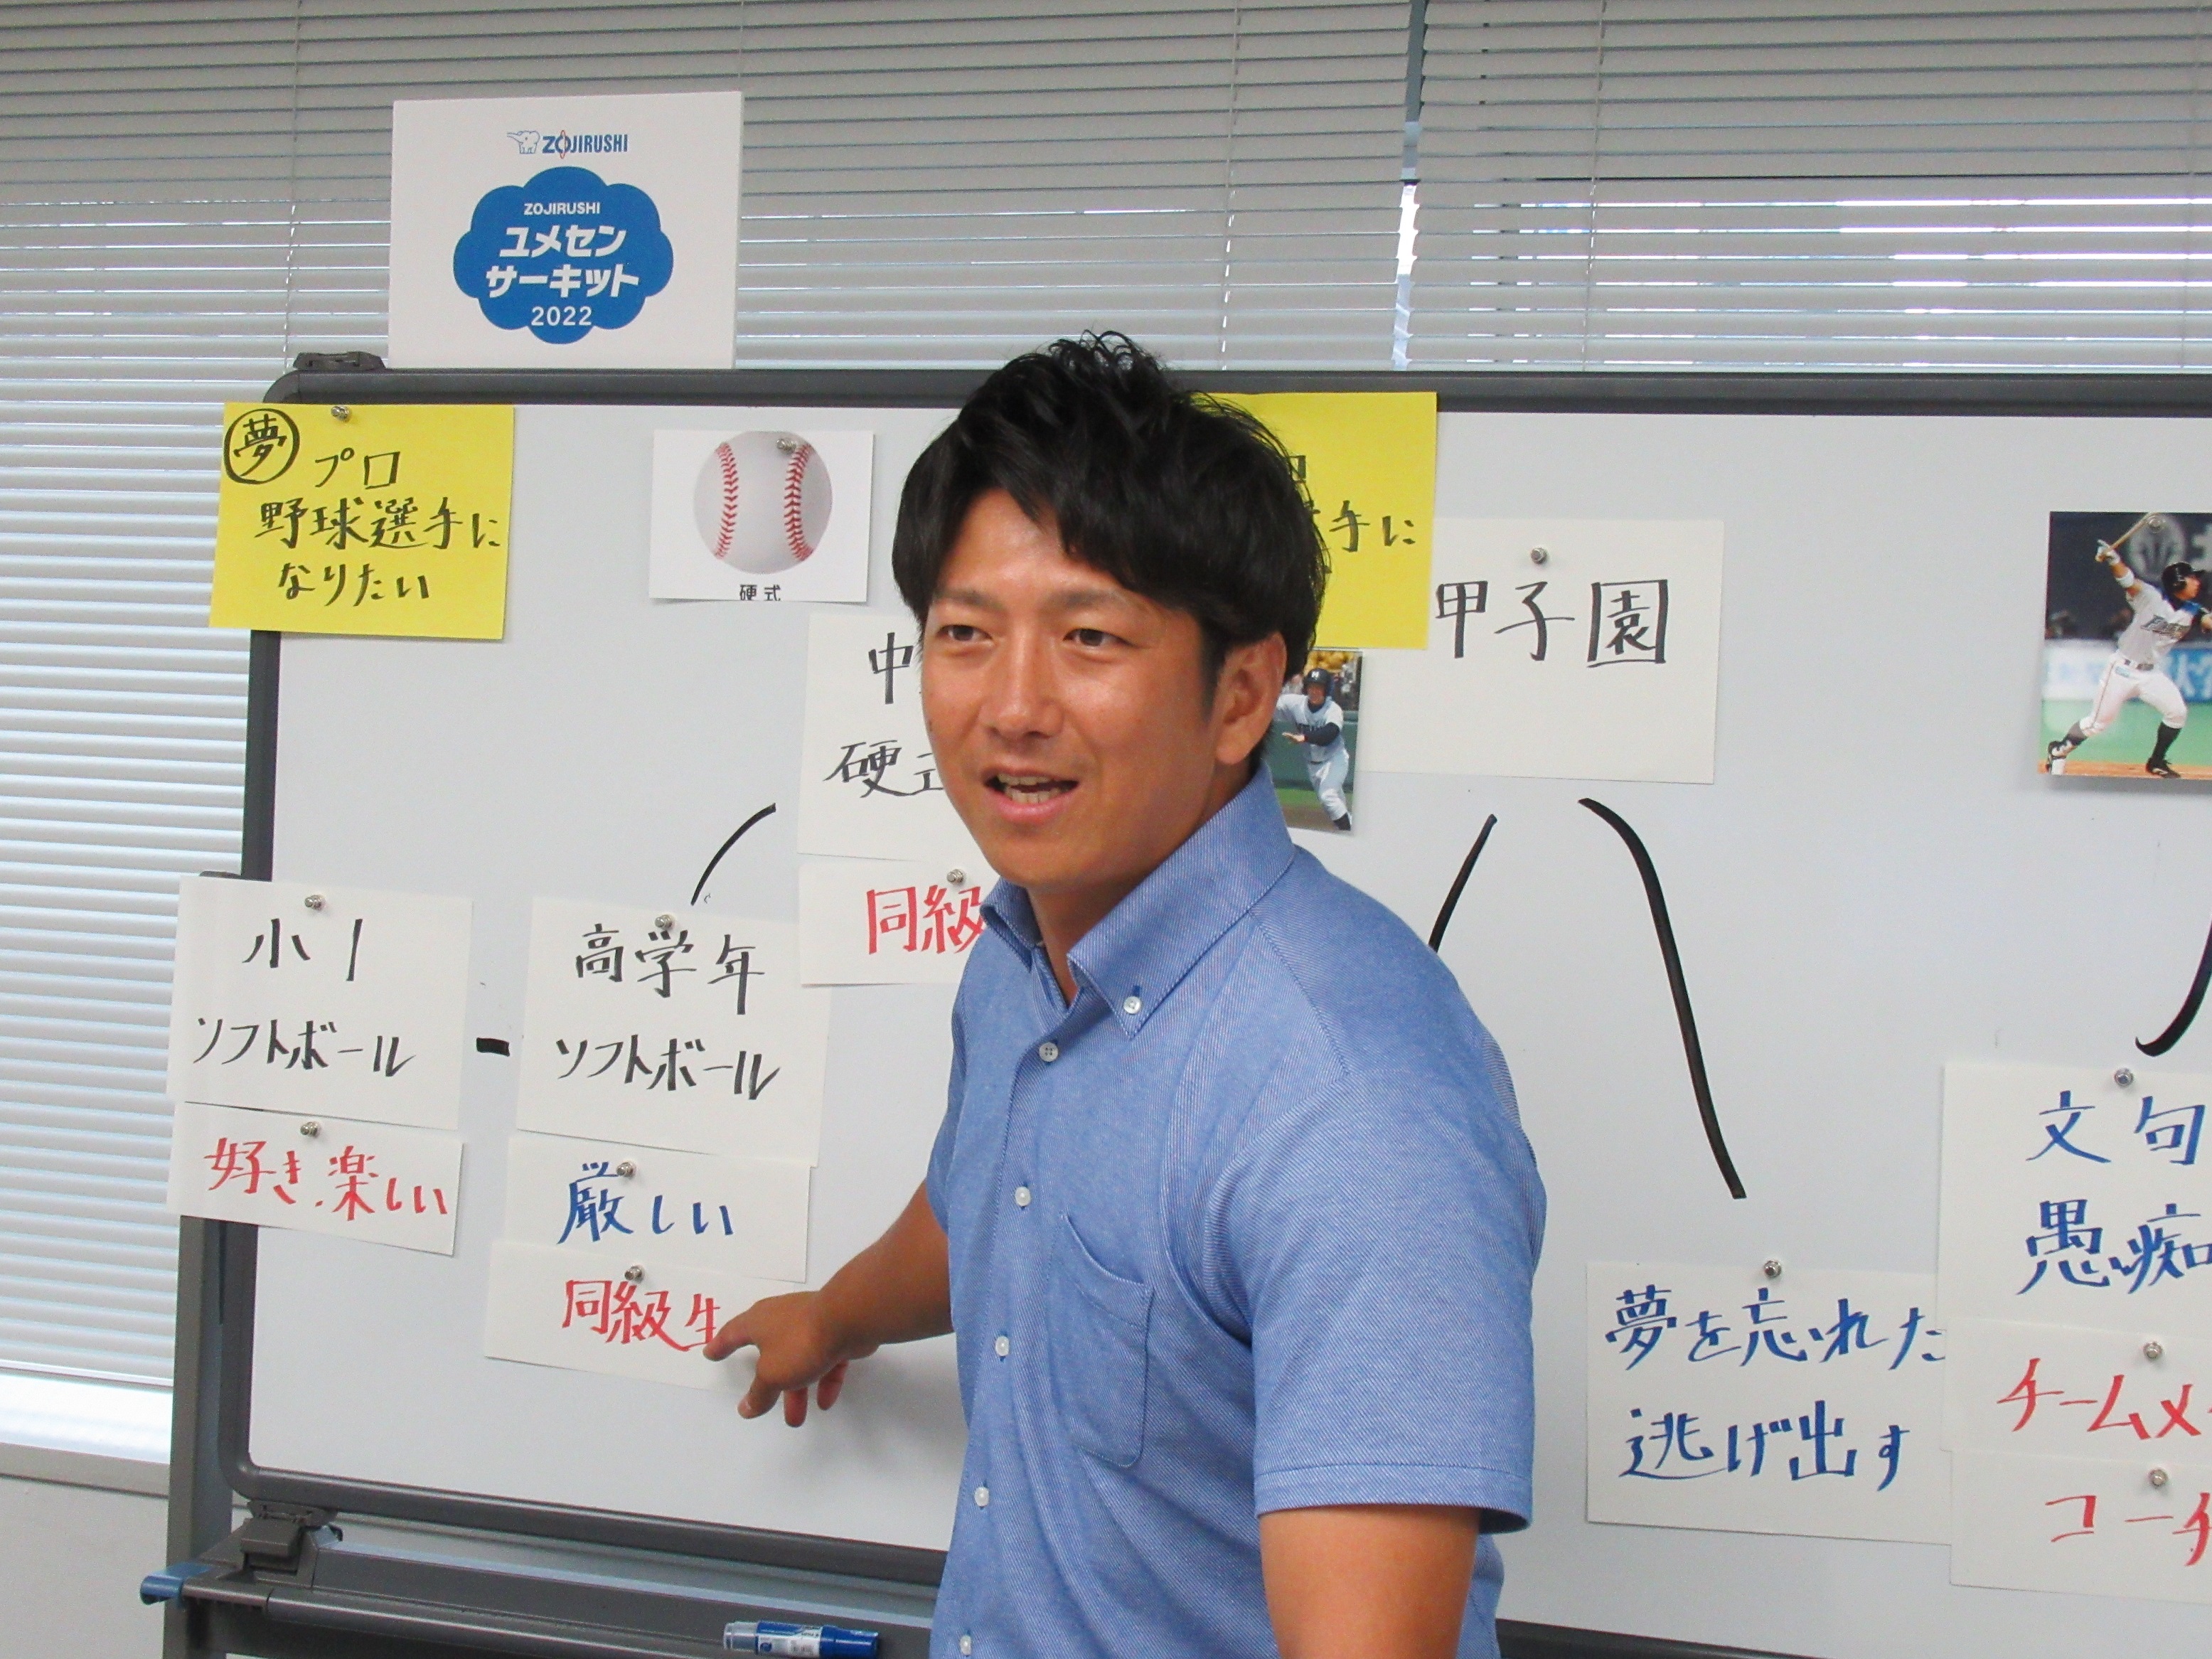 ZOJIRUSHI
ZOJIRUSHI
ユメセン
サーキット
2022
夢
プロ
野球選手に
なりたい
硬式
中
硬式
同級
小1
ソフトボール
好き、楽しい
高学年
ソフトボール
厳しい
同級生
手に
甲子園
夢を忘れた
逃げ出す
文句
愚痴
チームメ
コーチ